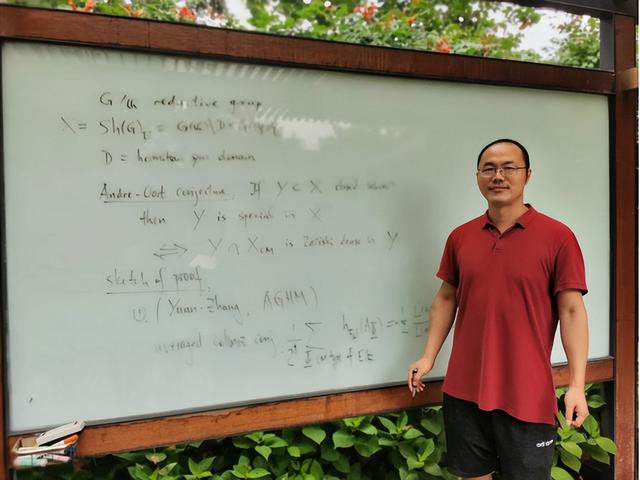 G/ℚ reductive group
X = Sh(G) = G(ℚ)\D × G(
D = hermitian sym domain
Andre-Oort conjecture. If Y ⊂ X closed
then Y is special in X
⟺ Y ∩ X_CM is Zariski dense in Y
sketch of proof.
①. (Yuan-Zhang, AGHM)
averaged colmez conj. : 1/2^g Σ h(A_Φ) = -1/2
Φ CM type of E